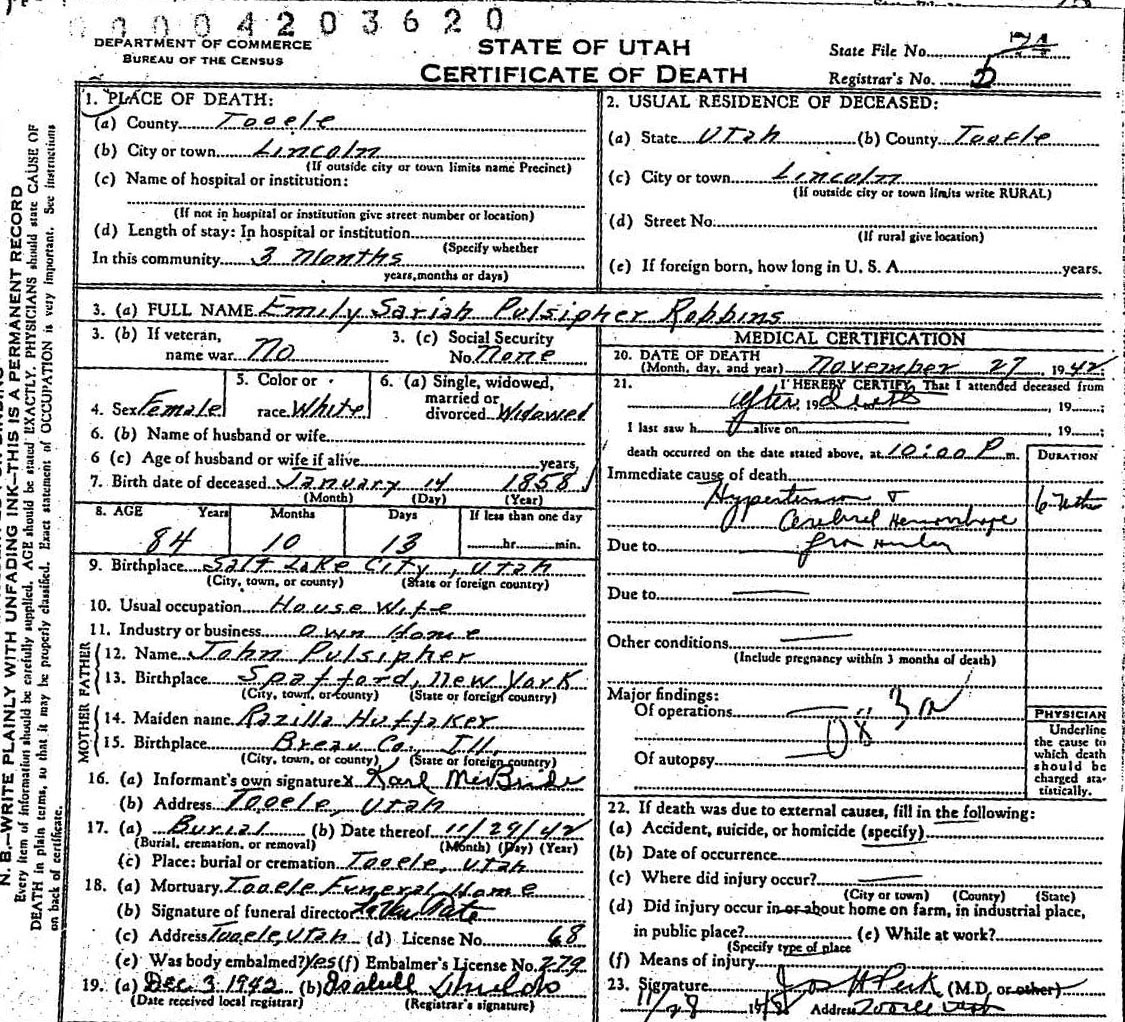 00004203620
DEPARTMENT OF COMMERCE
BUREAU OF THE CENSUS
STATE OF UTAH
CERTIFICATE OF DEATH
State File No. 74
Registrar's No.
1. PLACE OF DEATH:
(a) County Tooele
(b) City or town Lincoln
(If outside city or town limits name Precinct)
(c) Name of hospital or institution:
(If not in hospital or institution give street number or location)
(d) Length of stay: In hospital or institution
(Specify whether
In this community 3 Months
years, months or days)
2. USUAL RESIDENCE OF DECEASED:
(a) State Utah (b) County Tooele
(c) City or town Lincoln
(If outside city or town limits write RURAL)
(d) Street No.
(If rural give location)
(e) If foreign born, how long in U. S. A. years.
3. (a) FULL NAME Emily Sariah Pulsipher Robbins
3. (b) If veteran,
name war No
3. (c) Social Security
No. None
4. Sex Female
5. Color or
race White
6. (a) Single, widowed,
married or
divorced Widowed
6. (b) Name of husband or wife
6 (c) Age of husband or wife if alive years,
7. Birth date of deceased January 14 1858
(Month) (Day) (Year)
8. AGE Years Months Days If less than one day
84 10 13 hr. min.
9. Birthplace Salt Lake City, Utah
(City, town, or county) (State or foreign country)
10. Usual occupation House Wife
11. Industry or business Own Home
FATHER
12. Name John Pulsipher
13. Birthplace Spafford, New York
(City, town, or county) (State or foreign country)
MOTHER
14. Maiden name Rozilla Huffaker
15. Birthplace Breau Co., Ill.
(City, town, or county) (State or foreign country)
16. (a) Informant's own signature x Karl McBride
(b) Address Tooele, Utah
17. (a) Burial (b) Date thereof 11/29/42
(Burial, cremation, or removal) (Month) (Day) (Year)
(c) Place: burial or cremation Tooele, Utah
18. (a) Mortuary Tooele Funeral Home
(b) Signature of funeral director Tate
(c) Address Tooele, Utah (d) License No. 68
(e) Was body embalmed? Yes (f) Embalmer's License No. 279
19. (a) Dec 3 1942 (b) Isabell Shields
(Date received local registrar) (Registrar's signature)
MEDICAL CERTIFICATION
20. DATE OF DEATH
(Month, day, and year) November 27, 1942
21. I HEREBY CERTIFY, That I attended deceased from
after 19 death, 19
I last saw h alive on, 19
death occurred on the date stated above, at 10:00 P m.
DURATION
Immediate cause of death
Hypertension 6
Cerebral Hemorrhage
Due to
Due to
Other conditions
(Include pregnancy within 3 months of death)
Major findings:
Of operations
Of autopsy
PHYSICIAN
Underline
the cause to
which death
should be
charged sta-
tistically.
22. If death was due to external causes, fill in the following:
(a) Accident, suicide, or homicide (specify)
(b) Date of occurrence
(c) Where did injury occur?
(City or town) (County) (State)
(d) Did injury occur in or about home on farm, in industrial place,
in public place? (e) While at work?
(Specify type of place
(f) Means of injury
23. Signature Jos H Peck (M.D. or other)
11/28 19 Address Tooele Utah
N. B.—WRITE PLAINLY WITH UNFADING INK—THIS IS A PERMANENT RECORD
Every item of information should be carefully supplied. AGE should be stated EXACTLY. PHYSICIANS should state CAUSE OF
DEATH in plain terms, so that it may be properly classified. Exact statement of OCCUPATION is very important. See instructions
on back of certificate.